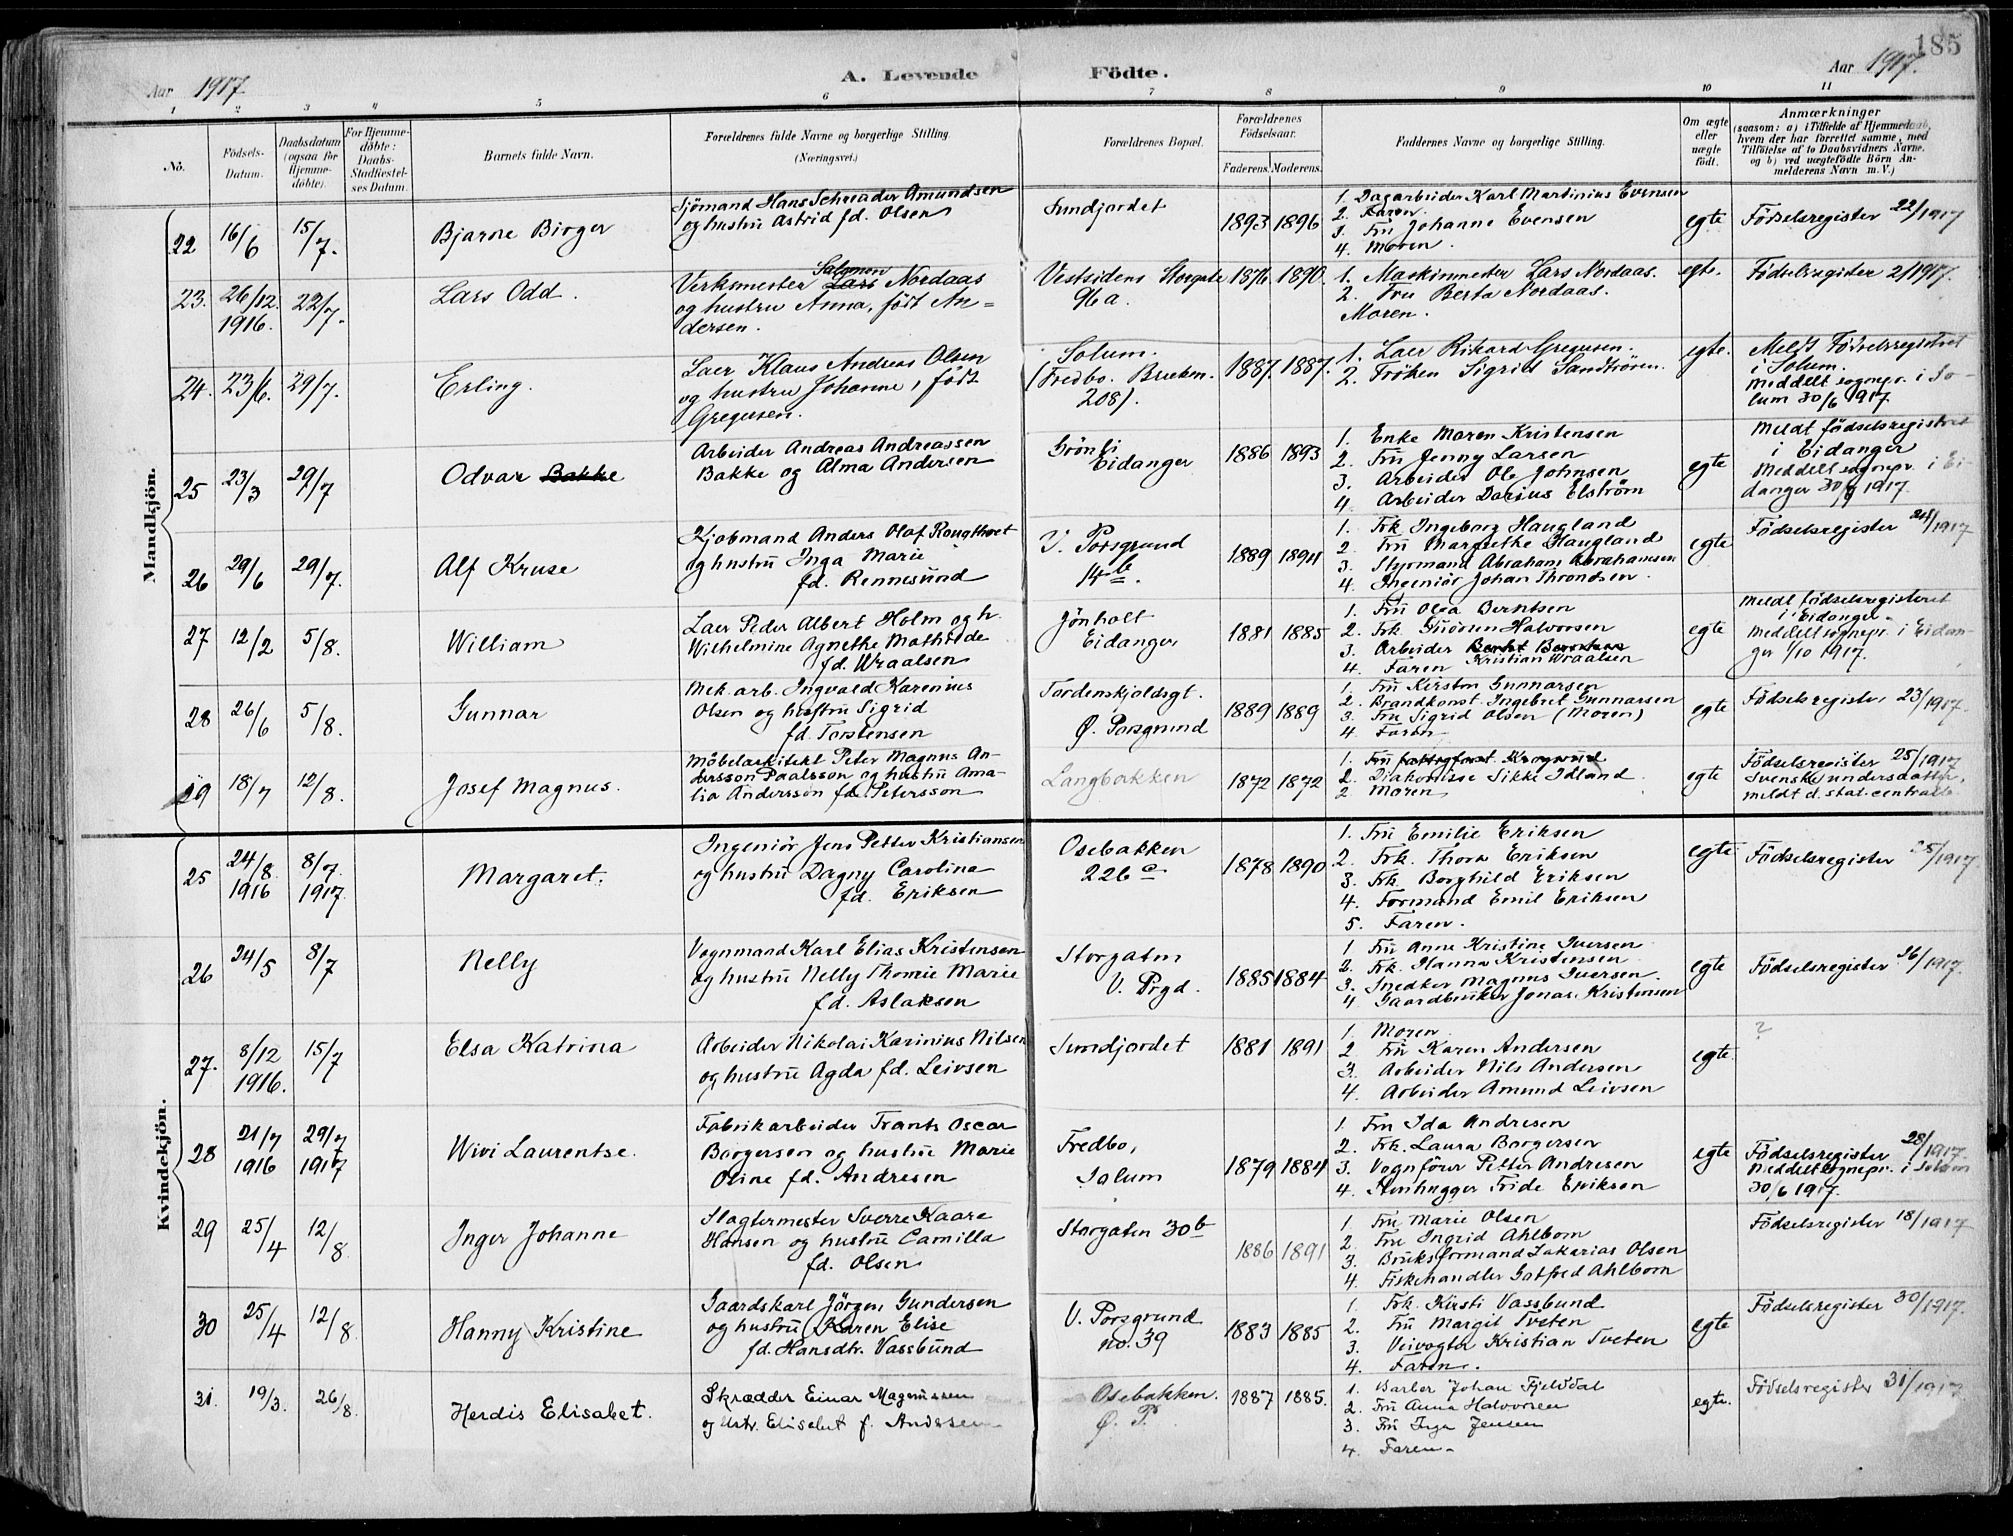 185
Aar 1917
A. Levende Födte.
Aar 1917.
1 2 3 4 5 6 7 8 9 10 11
No.
Födsels-
Datum.
Daabsdatum
(ogsaa for
Hjemme-
döbte).
For Hjemme-
döbte:
Daabs-
Stadfæstel-
ses Datum.
Barnets fulde Navn.
Forældrenes fulde Navne og borgerlige Stilling.
(Næringsvei.)
Forældrenes Bopæl.
Forældrenes
Födselsaar.
Faderens. Moderens.
Faddernes Navne og borgerlige Stilling.
Om ægte
eller
uægte
födt.
Anmærkninger
(saasom: a) i Tilfælde af Hjemmedaab,
hvem der har forrettet samme, med
Tilföielse af to Daabsvidners Navne.
og b) ved uægtefödte Börn An-
melderens Navn m. V.)
Mandkjön.
22 16/6 15/7. Bjarne Birger
Sjömand Hans Schreader Amundsen
og hustru Astrid fd. Olsen
Sundjordet
1893 1896
1. Dagarbeider Karl Martinius Evensen
2. Faren
3. Fru Johanne Evensen
4. Moren.
egte Födselsregister 22/1917
23. 26/12. 1916. 22/7. Lars Odd.
Salomon
Verksmester Lars Nordaas
og hustru Anna, födt An-
dersen.
Vestsidens Storgate
96a.
1876 1890.
1. Maskinmester Lars Nordaas.
2. Fru Berta Nordaas.
Moren.
egte. Födselsregister 2/1917.
24. 23/6. 29/7. Erling.
Laer Klaus Andreas Olsen
og hustru Johanne, födt
Gregusen.
Solum.
(Fredbo. Brukn.
208).
1887. 1887.
1. Laer Rikard Gregusen.
2. Fröken Sigrid
egte. Meldt Födselsregistret
i Solum.
Meddelt sognepr. i So-
lum 30/6 1917
25 23/3 29/7 Odvar Bakke
Arbeider Andreas Andreassen
Bakke og Alma Andersen
Grönli
Eidanger
1886 1893
1. Enke Maren Kristensen
2. Fru Jenny Larsen
3. Arbeider Ole Johnsen
4. Arbeider Darius Elström
egte
Meldt födselsregistret
i Eidanger
Meddelt sognepr. i Ei-
danger 30/9 1917.
26 29/6 29/7. Alf Kruse
Kjøbmand Anders Olaf
og hustru Inga Marie
fd. Rennesund
V. Porsgrund
14b.
1889 1894
1. Frk. Ingeborg Haugland
2. Fru Margrethe Haugland
3. Styrmand Abraham Abrahamsen
4. Ingeniör Johan Throndsen.
egte Födselsregister 24/1917
27 12/2 5/8. William
Laer Peder Albert Holm og h.
Wilhelmine Agnethe Mathilde
fd. Wraalsen
Jönholt
Eidanger
1881 1885
1. Fru Olga Berntsen
2. Frk. Gudrun Halvorsen
3. Arbeider Bernt Berntsen
Kristian Wraalsen
4. Faren
egte
Meldt födselsregisteret
i Eidanger
Meddelt sognepr. i Eidan-
ger 1/10 1917.
28 26/6 5/8. Gunnar
Mek. arb. Ingvald Karenius
Olsen og hustru Sigrid
fd. Torstensen
Tordenskjoldsgt.
Ø. Porsgrund
1889 1889
1. Fru Kirsten Gunnarsen
2. Brandkonst. Ingebret Gunnarsen
3. Fru Sigrid Olsen (Moren)
4. Faren
egte Födselsregister 23/1917.
29 18/7 12/8. Josef Magnus.
Möbelarkitekt Peter Magnus An-
dersson Paalsson og hustru Ama-
lia Andersson fd. Petersson
Langbakken
1872 1872
1. Fru fattigforst. Krogsrud
2. Diakonisse Sikke Idland
2 Moren
egte
Födselsregister 25/1917
Svenske undersaatter,
meldt d. stat. centralb.
Kvindekjön.
25 24/8. 1916 8/7. 1917. Margaret.
Ingeniör Jens Petter Kristiansen
og hustru Dagny Carolina
fd. Eriksen
Osebakken
226c
1878 1890
1. Fru Emilie Eriksen
2. Frk. Thora Eriksen
3. Frk. Borghild Eriksen
4. Formand Emil Eriksen
5. Faren.
egte Födselsregister 25/1917.
26 24/5 8/7 Nelly
Vognmand Karl Elias Kristensen
og hustru Nelly Thomie Marie
fd. Aslaksen
Storgaten
V. Prgd.
1885 1884
1. Fru Anne Kristine Iversen
2. Frk. Hanna Kristensen
3. Snedker Magnus Iversen.
4. Gaardbruker Jonas Kristensen
egte Födselsregister 26/1917.
27. 8/12 1916. 15/7 Elsa Katrina
Arbeider Nikolai Karinius Nilsen
og hustru Agda fd. Leivsen
Sundjordet
1881 1891
1. Moren
2 Fru Karen Andersen
3. Arbeider Nils Andersen
4. Arbeider Amund Leivsen
egte. ?
28 21/7 1916 29/7 1917 Wivi Laurentse.
Fabrikarbeider Frants Oscar
Borgersen og hustru Marie
Oline fd. Andresen
Fredbo,
Solum
1879 1884
1. Fru Ida Andresen
2. Frk. Laura Borgersen
3. Vognförer Petter Andresen
4. Stenhugger Fride Eriksen
egte
Födselsregister 28/1917.
Meddelt sognepr. i Solum
30/6 1917.
29 25/4 12/8 Inger Johanne
Slagtermester Sverre Kaare
Hansen og hustru Camilla
fd. Olsen
Storgaten 30b
1886 1891
1. Fru Marie Olsen
2. Fru Ingrid Ahlbom
3. Bruksformand Zakarias Olsen
4. Fiskehandler Gotfred Ahlbom
Födselsregister 18/1917
30 25/4 12/8. Hanny Kristine
Gaardskarl Jörgen Gundersen
og hustru Karen Elise
fd. Hansdtr. Vassbund
V. Porsgrund
no. 39
1883 1885
1. Frk. Kirsti Vassbund
2. Fru Margit Tveten
3. Veivogter Kristian Tveten
4. Faren.
egte Födselsregister 30/1917.
31. 19/3. 26/8. Herdis Elisabet.
Skrædder Einar Magnussen
og hstr. Elisabet f. Andersen
Osebakken.
Ø. P.
1887 1885.
1. Barber Johan Fjelddal
2. Fru Anna Halvorsen
3. Fru Inga Jensen
4. Faren.
egte. Födselsregister 31/1917